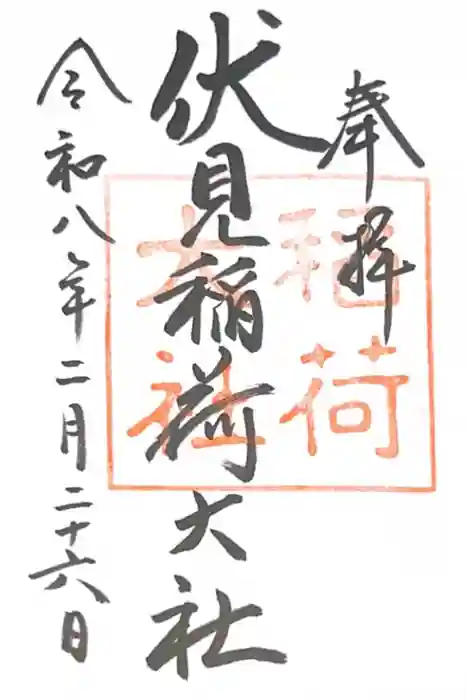 奉拝
伏見稲荷大社
令和八年二月二十六日
稲荷
大社